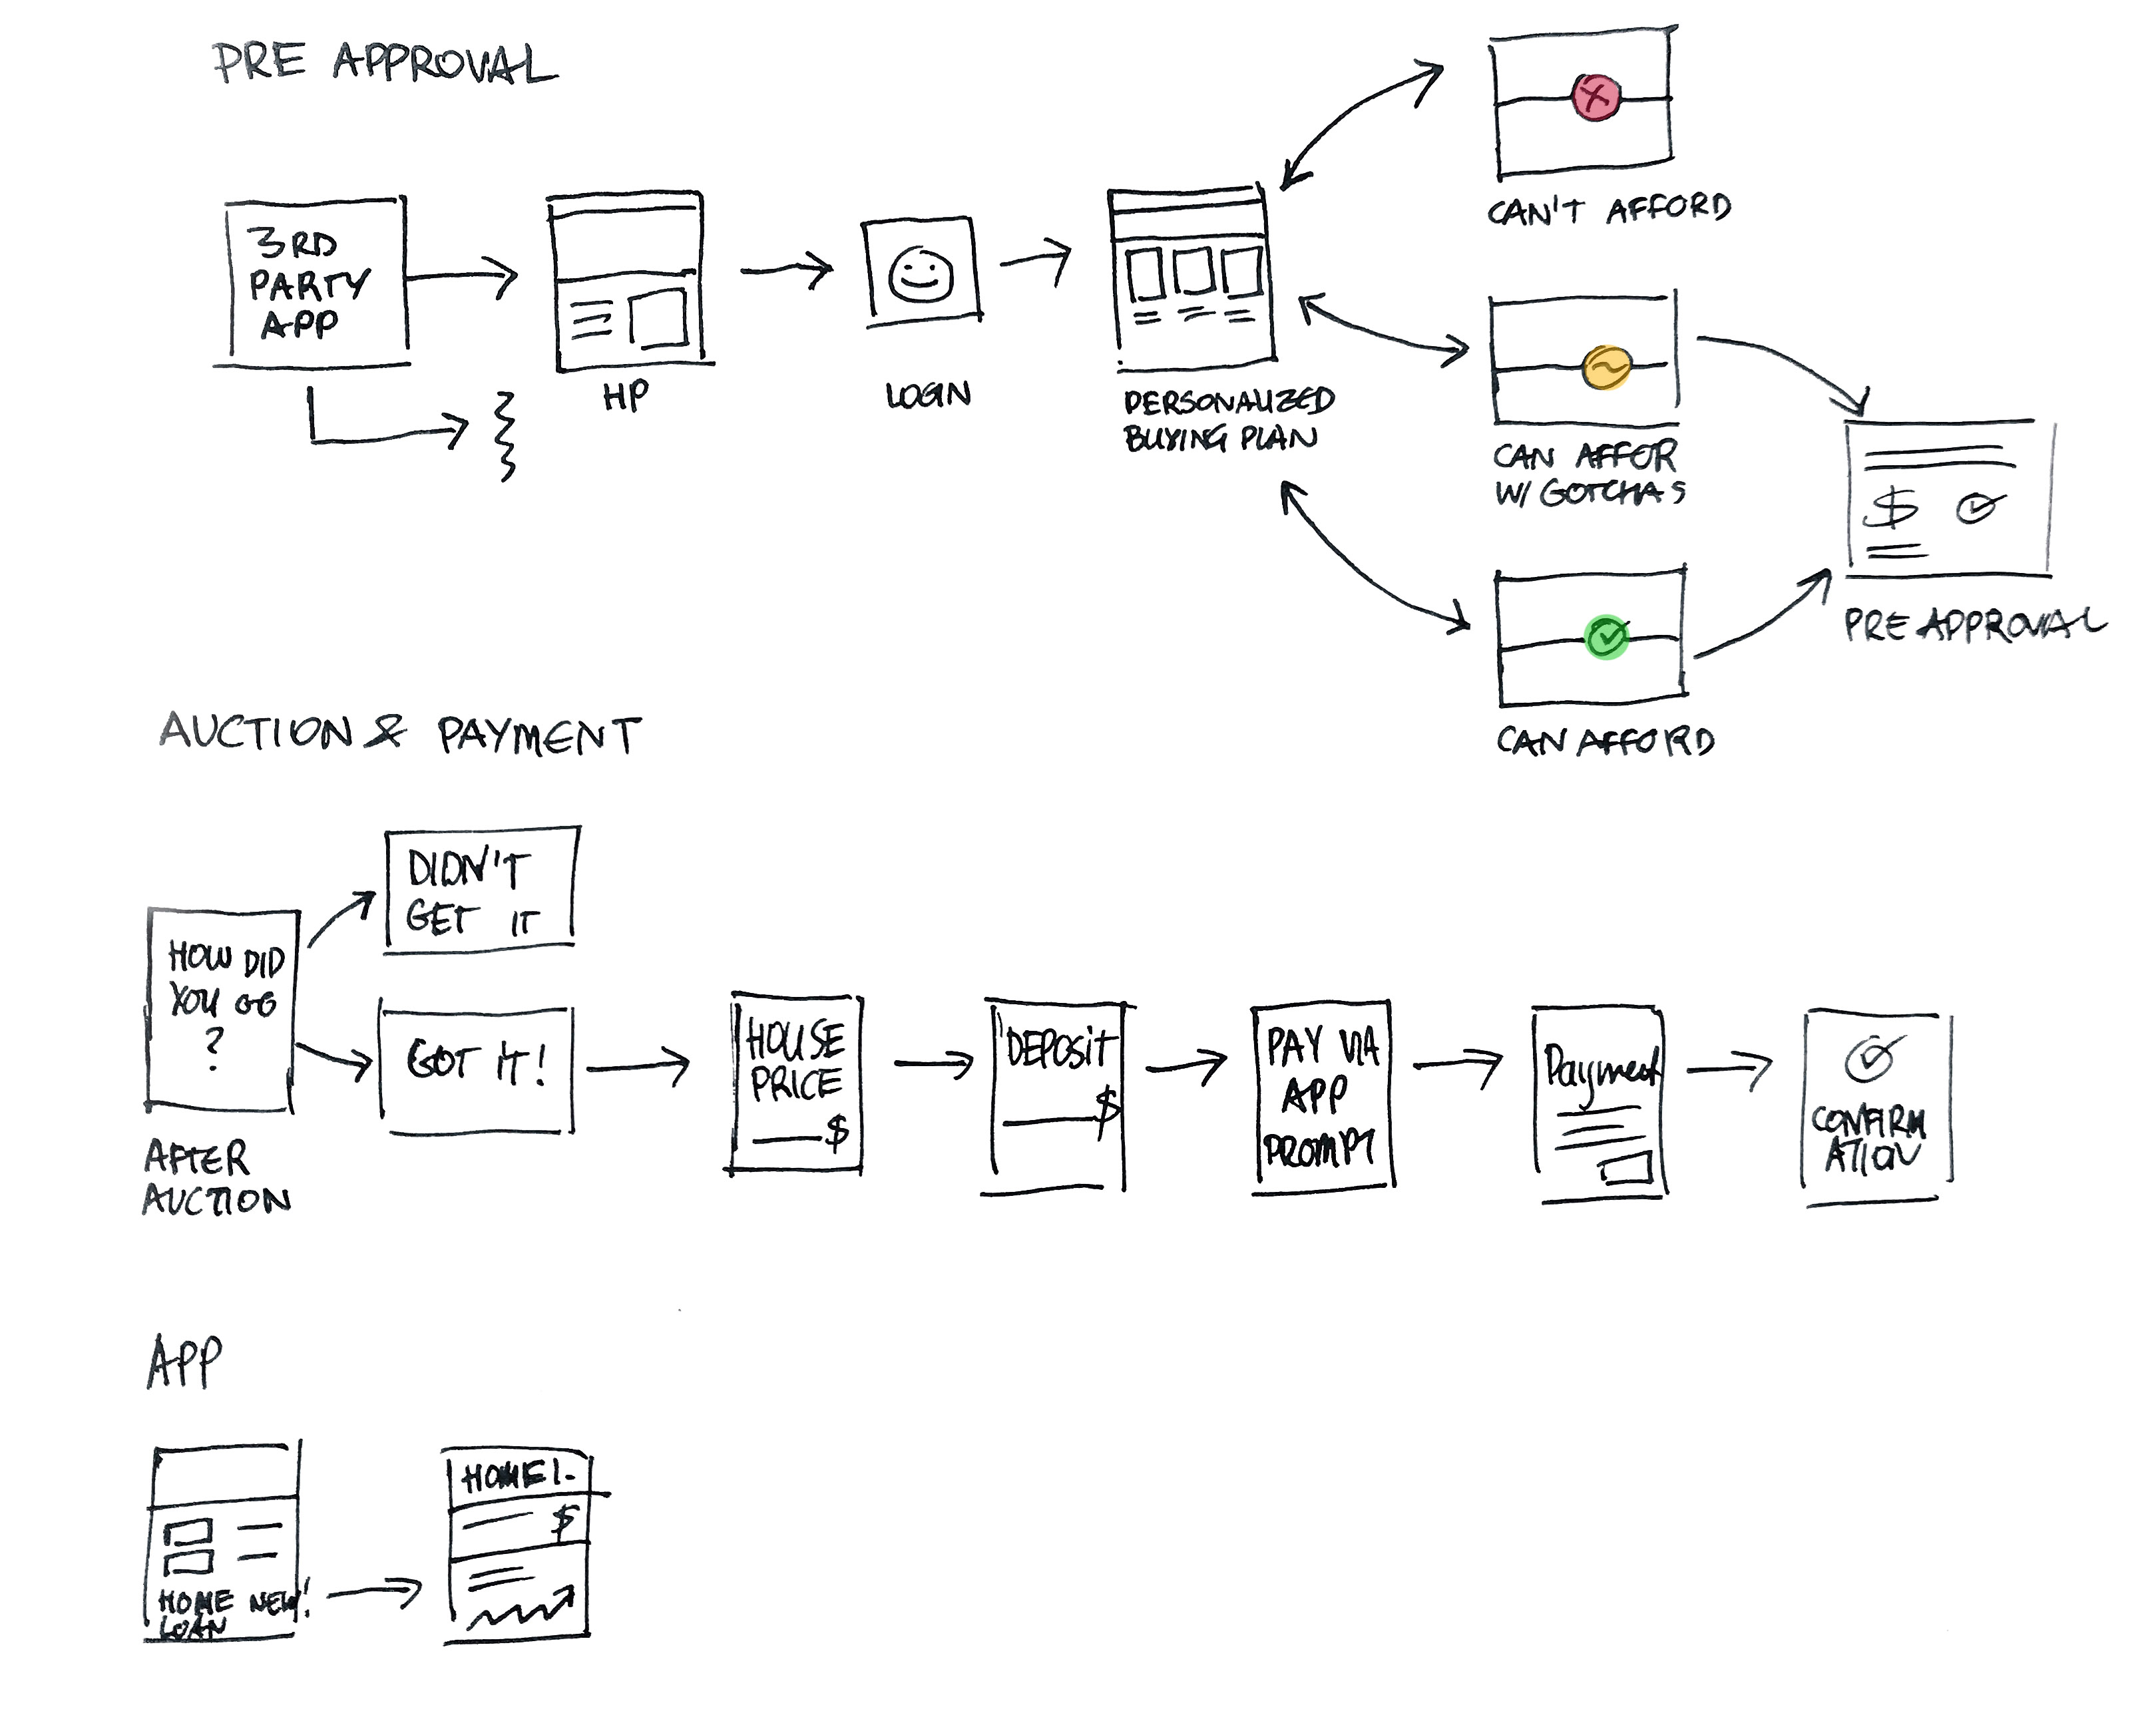 PRE APPROVAL
3RD
PARTY
APP
HP
LOGIN
PERSONALIZED
BUYING PLAN
CAN'T AFFORD
CAN AFFOR
W/ GOTCHAS
CAN AFFORD
$
PRE APPROVAL
AUCTION & PAYMENT
HOW DID
YOU GO
?
AFTER
AUCTION
DIDN'T
GET IT
GOT IT!
HOUSE
PRICE
$
DEPOSIT
$
PAY VIA
APP
PROMPT
Payment
CONFIRM
ATION
APP
HOME NEW!
LOAN
HOME L
$